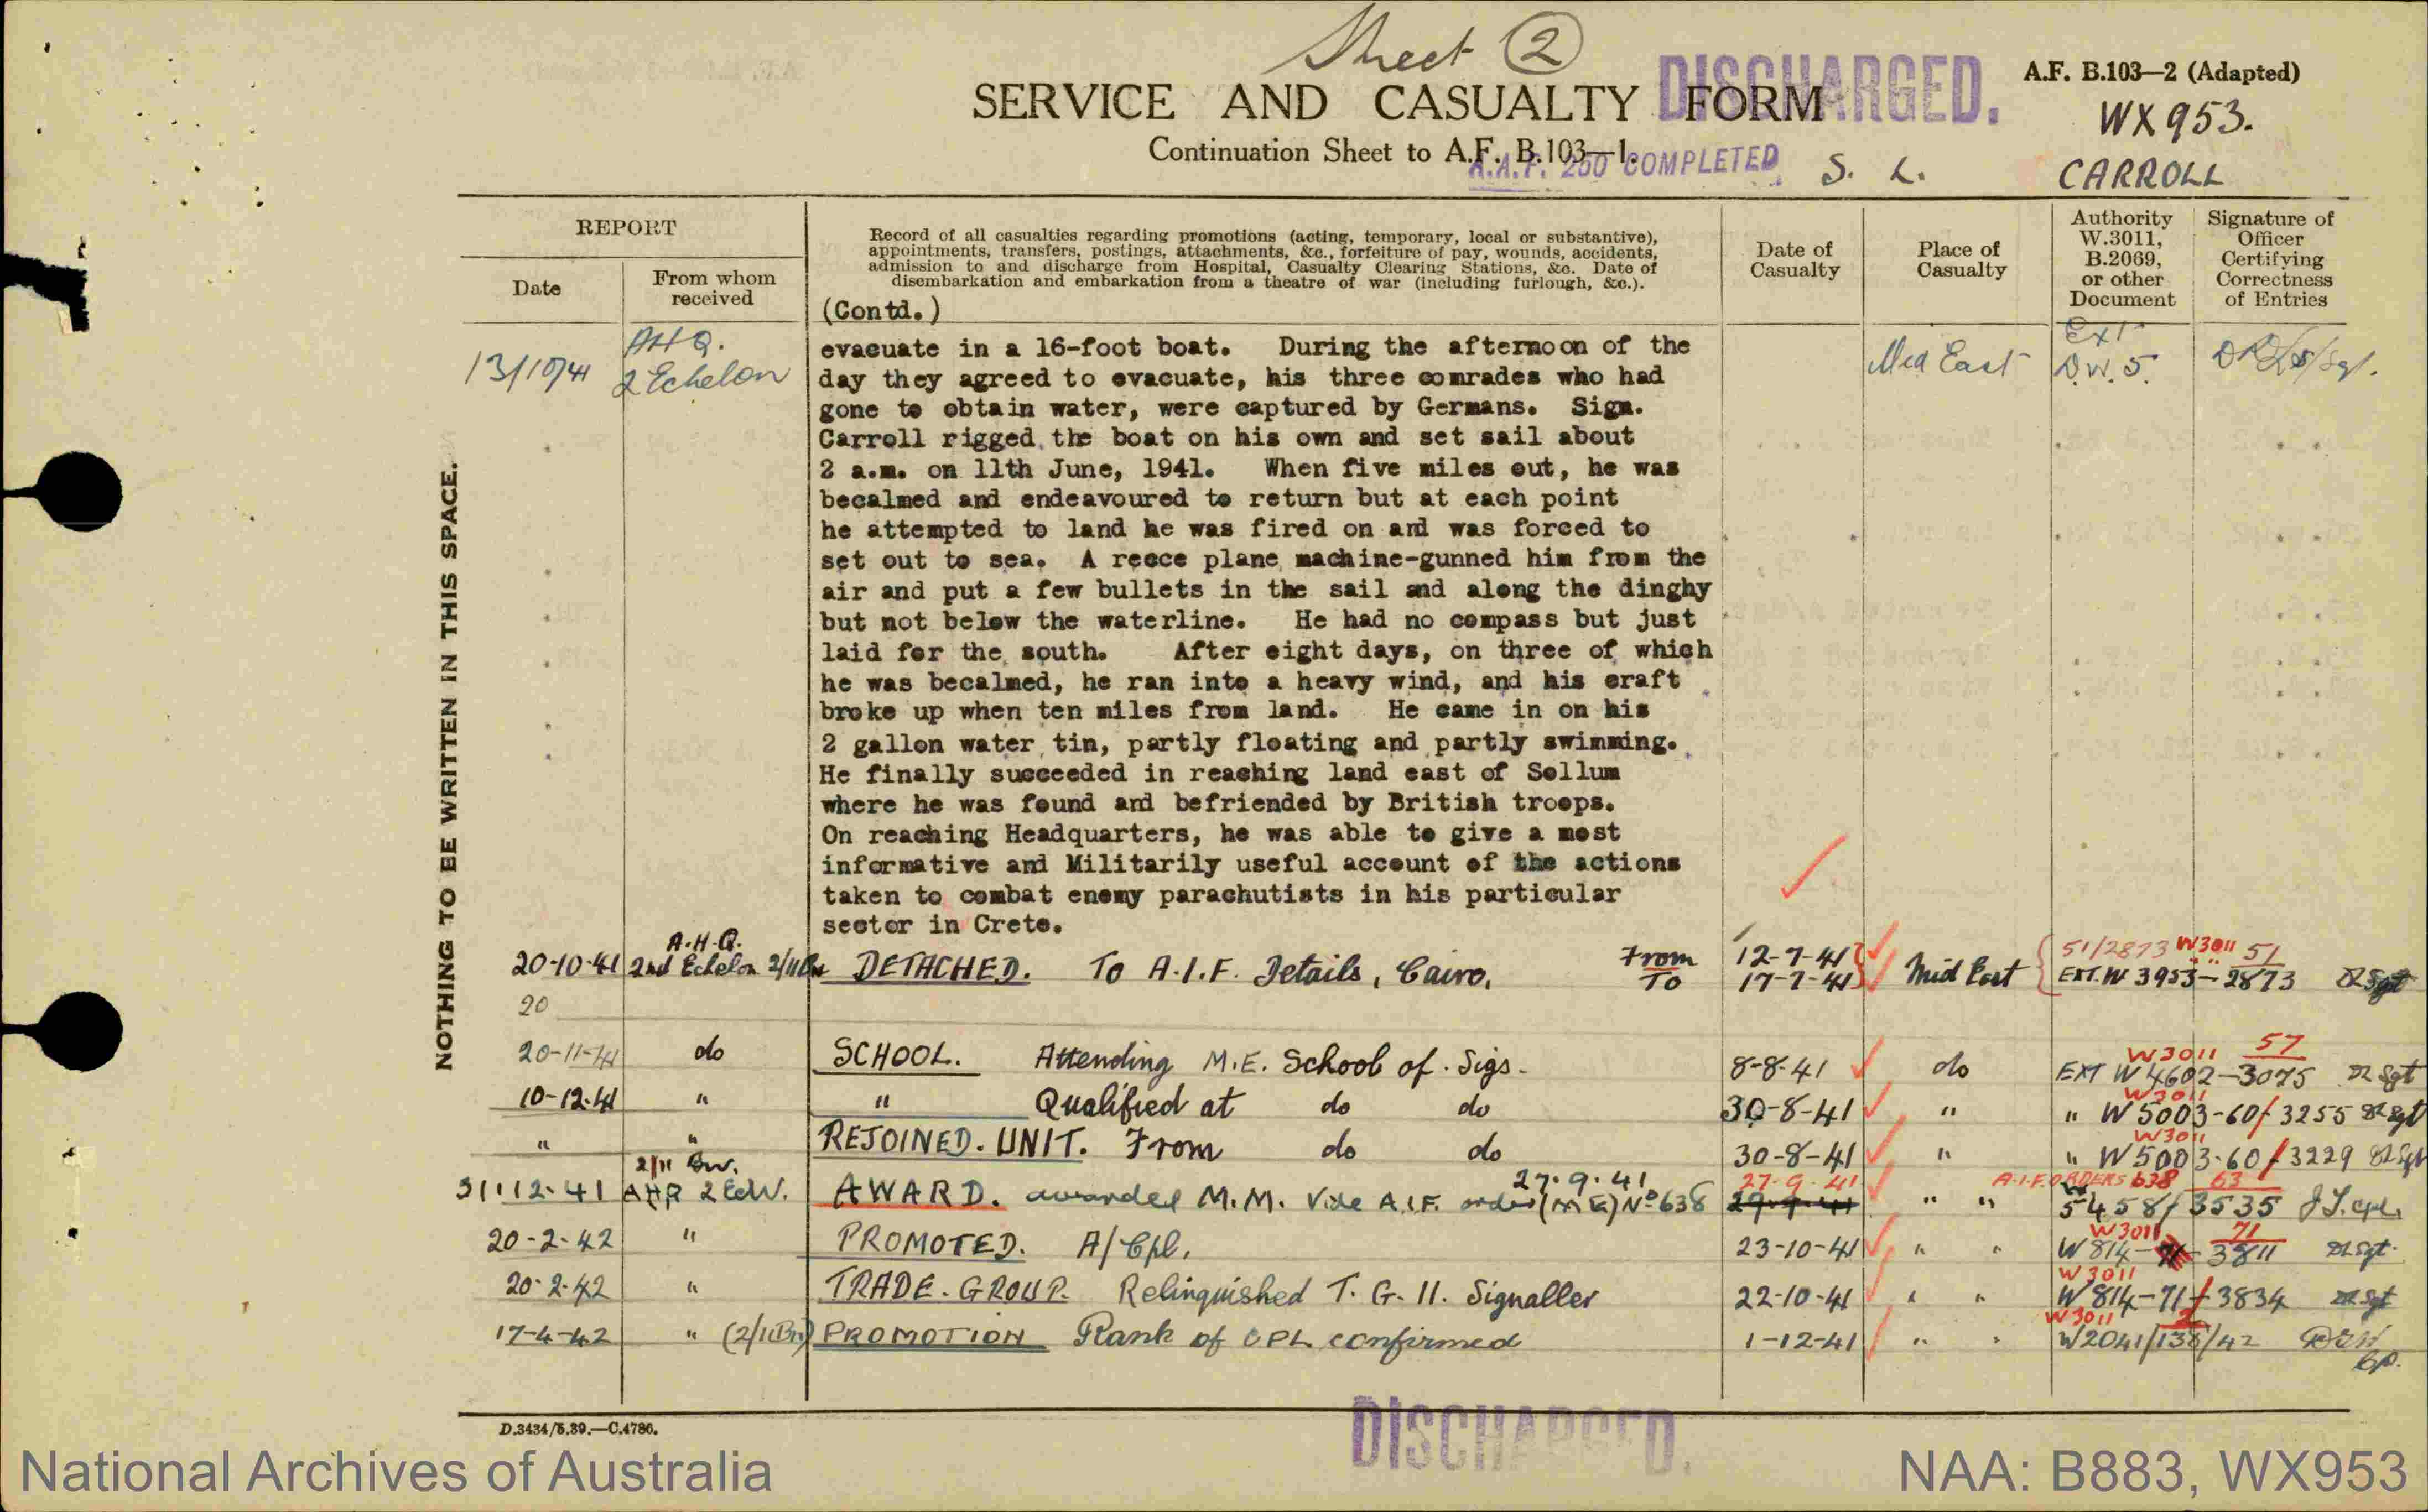 Sheet 2
SERVICE AND CASUALTY FORM
DISCHARGED.
A.F. B.103—2 (Adapted)
WX953.
Continuation Sheet to A.F. B.103—1.
A.A.F. 250 COMPLETED
S. L. CARROLL
REPORT
Date
From whom received
Record of all casualties regarding promotions (acting, temporary, local or substantive),
appointments, transfers, postings, attachments, &c., forfeiture of pay, wounds, accidents,
admission to and discharge from Hospital, Casualty Clearing Stations, &c. Date of
disembarkation and embarkation from a theatre of war (including furlough, &c.).
Date of Casualty
Place of Casualty
Authority W.3011, B.2069, or other Document
Signature of Officer Certifying Correctness of Entries
NOTHING TO BE WRITTEN IN THIS SPACE.
(Contd.)
13/10/41 AHQ. 2 Echelon
Mid East
Ext D.W.5.
evacuate in a 16-foot boat. During the afternoon of the
day they agreed to evacuate, his three comrades who had
gone to obtain water, were captured by Germans. Sigm.
Carroll rigged the boat on his own and set sail about
2 a.m. on 11th June, 1941. When five miles out, he was
becalmed and endeavoured to return but at each point
he attempted to land he was fired on and was forced to
set out to sea. A recce plane machine-gunned him from the
air and put a few bullets in the sail and along the dinghy
but not below the waterline. He had no compass but just
laid for the south. After eight days, on three of which
he was becalmed, he ran into a heavy wind, and his craft
broke up when ten miles from land. He came in on his
2 gallon water tin, partly floating and partly swimming.
He finally succeeded in reaching land east of Sollum
where he was found and befriended by British troops.
On reaching Headquarters, he was able to give a most
informative and Militarily useful account of the actions
taken to combat enemy parachutists in his particular
sector in Crete.
20-10-41 A.H.Q. 2nd Echelon 2/11 Bn DETACHED. To A.I.F. Details, Cairo. From 12-7-41 To 17-7-41 Mid East 51/2873 W3011 51 EXT. W 3953-2873 Sgt
20
20-11-41 do SCHOOL. Attending M.E. School of. Sigs. 8-8-41 do W3011 57 EXT W 4602-3075 Sgt
10-12-41 " " Qualified at do do 30-8-41 " W3011 " W 5003-60/3255 Sgt
" " REJOINED. UNIT. From do do 30-8-41 " W3011 " W 5003-60/3229 Sgt
31-12-41 2/11 Bn. AHQ 2 Ech. AWARD. awarded M.M. Vide A.I.F. order (M E) No 638 27.9.41 27.9.41 " " A.I.F. ORDERS 638 63 5458/3535 Cpl.
20-2-42 " PROMOTED. A/Cpl. 23-10-41 " " W3011 71 W 814-71-3811 Sgt.
20-2-42 " TRADE. GROUP. Relinquished T. G. II. Signaller 22-10-41 " " W3011 W 814-71/3834 Sgt
17-4-42 " (2/11Bn) PROMOTION Rank of CPL confirmed 1-12-41 " " W3011 2 W2041/138/42 Cp.
D.3434/5.39.—C.4786.
DISCHARGED.
National Archives of Australia
NAA: B883, WX953